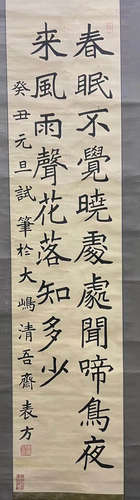 春眠不覺曉處處聞啼鳥夜
来風雨聲花落知多少
癸丑元旦試筆於大嶋清吾齋表方